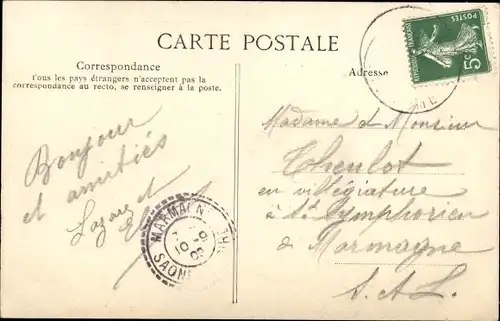 CARTE POSTALE
Correspondance
Tous les pays étrangers n'acceptent pas la
correspondance au recto, se renseigner à la poste.
Adresse
RÉPUBLIQUE FRANÇAISE
POSTES
5
Bonjour
et amitiés
Lazare et
Madame et Monsieur
Theulot
en villégiature
à St Symphorien
de Marmagne
S. et L.
MARMAGNE
SAONE